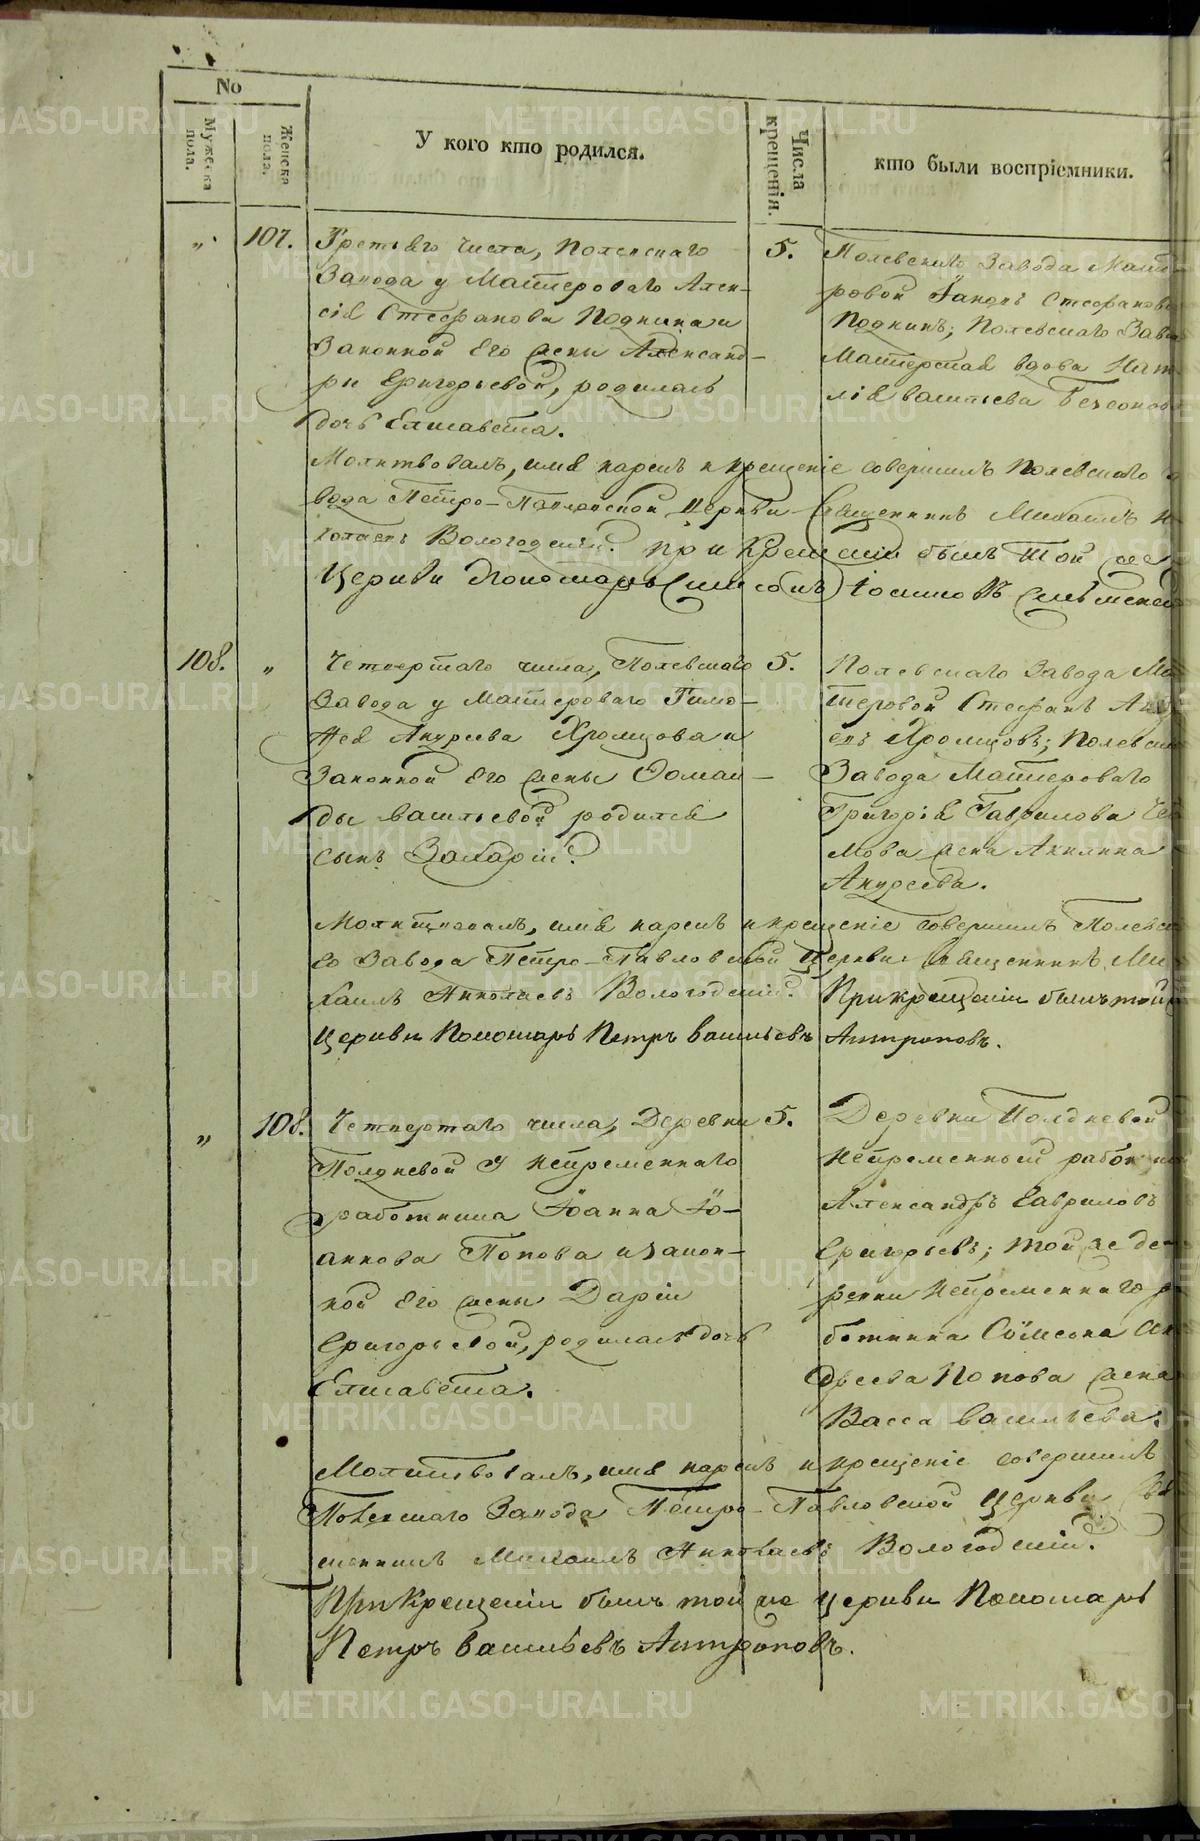 No
Мужеска пола.
Женска пола.
У кого кто родился.
Числа крещенія.
кто были воспріемники.
„
107.
Третьяго числа, Полевскаго
Завода у Мастероваго Алек-
сія Стефанова Поднина и
Законной Его жены Александ-
ры Григорьевой, родилась
дочь Елисавета.
5.
Полевскаго Завода Масте-
ровой Іаковъ Стефановъ
Поднинъ; Полевскаго Заво
Мастерская вдова Ната
лія Васильева
Молитвовалъ, имя нарекъ и крещеніе совершилъ Полевскаго
вода Петро-Павловской Церкви Священникъ Михаилъ Н
колаевъ Вологодскій. При крещеніи былъ той же
Церкви Пономарь
108.
„
Четвертаго числа, Полевскаго
Завода у Мастероваго Тимо-
ѳея Андреева Хромцова и
Законной Его жены Домни-
ды Васильевой родился
сынъ Захарій.
5.
Полевскаго Завода Мас
теровой Стефанъ Андре
евъ Хромцовъ; Полевскаго
Завода Мастероваго
Григорія Гаврилова
мова жена Акилина
Андреева.
Молитвовалъ, имя нарекъ и крещеніе совершилъ Полевска
го Завода Петро-Павловской Церкви Священникъ Ми
хаилъ Николаевъ Вологодскій. При крещеніи былъ той
Церкви Пономарь Петръ Васильевъ Антроповъ.
„
108.
Четвертаго числа, Деревни
Полдневой У Непременнаго
работника Іоанна Іо-
аннова Попова и закон-
ной Его жены Даріи
Григорьевой, родилась дочь
Елисавета.
5.
Деревни Полдневой
Непременный работникъ
Александръ Гавриловъ
Григорьевъ; той же де-
ревни Непременнаго ра
ботника Сѵмеона Ан
дреева Попова жена
Васса Васильева.
Молитвовалъ, имя нарекъ и крещеніе совершилъ
Полевскаго Завода Петро-Павловской Церкви Свя
щенникъ Михаилъ Николаевъ Вологодскій.
При Крещеніи былъ той же церкви Пономарь
Петръ Васильевъ Антроповъ.
METRIKI.GASO-URAL.RU